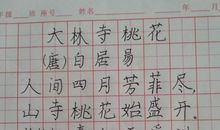 年级 座号 姓名 年 月
大林寺桃花
(唐)白居易
人间四月芳菲尽,
山寺桃花始盛开.